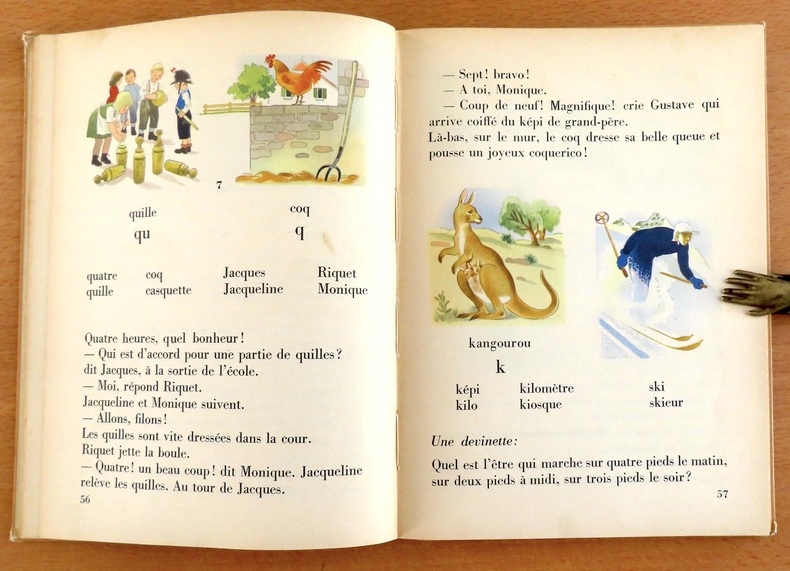 7
quille coq
qu q
quatre coq Jacques Riquet
quille casquette Jacqueline Monique
Quatre heures, quel bonheur !
— Qui est d'accord pour une partie de quilles ?
dit Jacques, à la sortie de l'école.
— Moi, répond Riquet.
Jacqueline et Monique suivent.
— Allons, filons !
Les quilles sont vite dressées dans la cour.
Riquet jette la boule.
— Quatre ! un beau coup ! dit Monique. Jacqueline
relève les quilles. Au tour de Jacques.
56
— Sept ! bravo !
— A toi, Monique.
— Coup de neuf ! Magnifique ! crie Gustave qui
arrive coiffé du képi de grand-père.
Là-bas, sur le mur, le coq dresse sa belle queue et
pousse un joyeux coquerico !
kangourou
k
képi kilomètre ski
kilo kiosque skieur
Une devinette :
Quel est l'être qui marche sur quatre pieds le matin,
sur deux pieds à midi, sur trois pieds le soir ?
57